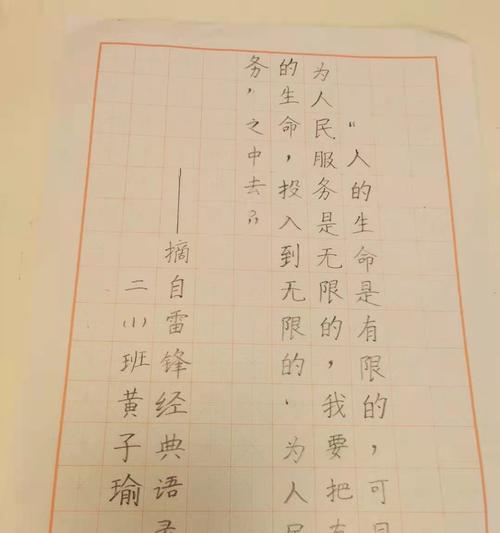 “人的生命是有限的，可
为人民服务是无限的，我要把有
的生命，投入到无限的‘为人民
务’之中去。”
——摘自雷锋经典语录
二(1)班黄子瑜